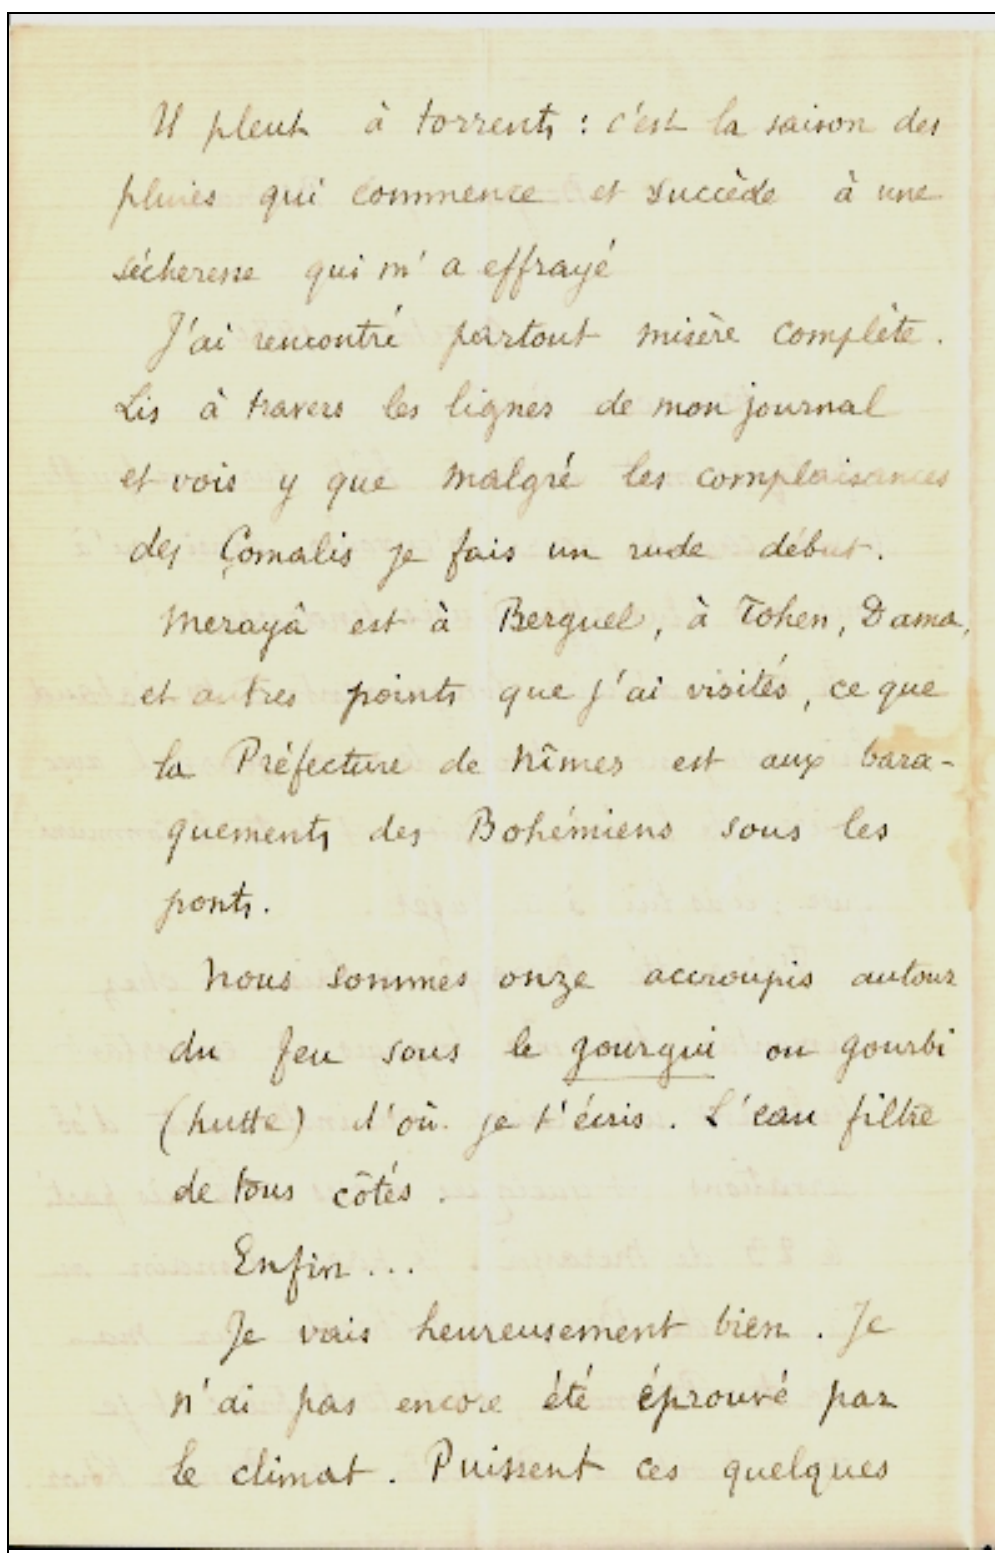 Il pleut à torrents : c'est la saison des
pluies qui commence et succède à une
sécheresse qui m'a effrayé
J'ai rencontré partout misère complète.
Lis à travers les lignes de mon journal
et vois y que malgré les complaisances
des Çomalis je fais un rude début.
Merayâ est à Berguel, à Tohen, Dama,
et autres points que j'ai visités, ce que
la Préfecture de Nîmes est aux bara-
quements des Bohémiens sous les
ponts.
Nous sommes onze accroupis autour
du feu sous le gourgui ou gourbi
(hutte) d'où je t'écris. L'eau filtre
de tous côtés.
Enfin...
Je vais heureusement bien. Je
n'ai pas encore été éprouvé par
le climat. Puissent ces quelques